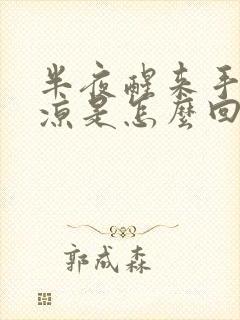 半夜醒来手
凉是怎麽回
郭成森